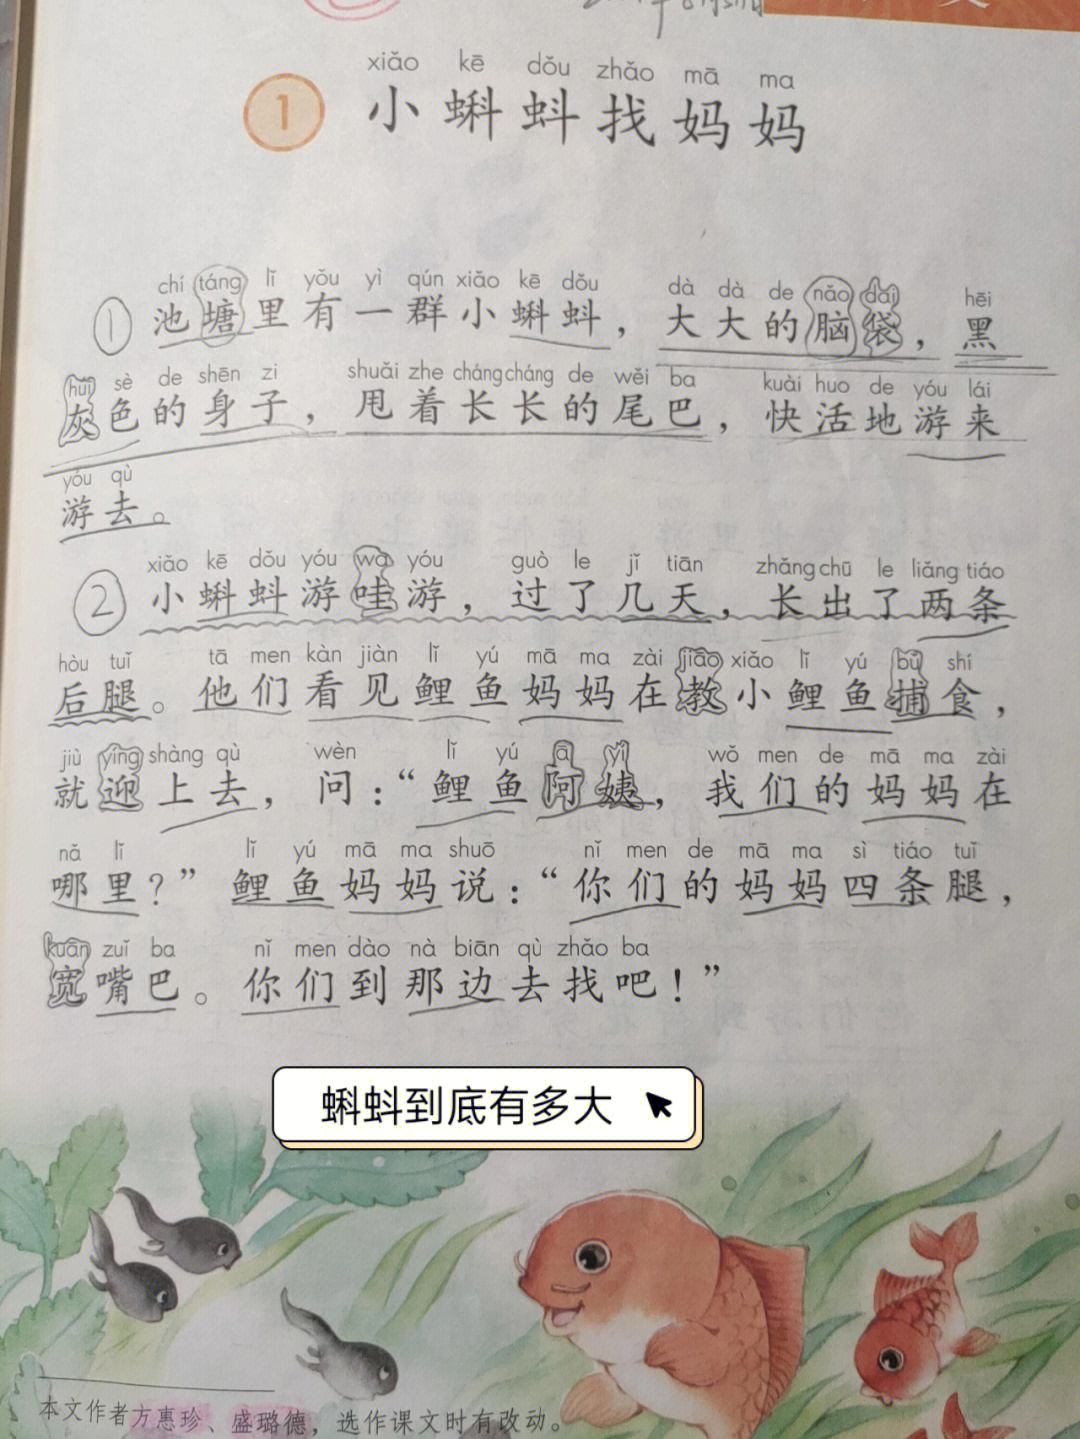 xiǎo kē dǒu zhǎo mā ma
1 小蝌蚪找妈妈
chí táng lǐ yǒu yì qún xiǎo kē dǒu dà dà de nǎo dai hēi
① 池塘里有一群小蝌蚪，大大的脑袋，黑
huī sè de shēn zi shuǎi zhe cháng cháng de wěi ba kuài huo de yóu lái
灰色的身子，甩着长长的尾巴，快活地游来
yóu qù
游去。
xiǎo kē dǒu yóu wa yóu guò le jǐ tiān zhǎng chū le liǎng tiáo
② 小蝌蚪游哇游，过了几天，长出了两条
hòu tuǐ tā men kàn jiàn lǐ yú mā ma zài jiāo xiǎo lǐ yú bǔ shí
后腿。他们看见鲤鱼妈妈在教小鲤鱼捕食，
jiù yíng shàng qù wèn lǐ yú ā yí wǒ men de mā ma zài
就迎上去，问：“鲤鱼阿姨，我们的妈妈在
nǎ lǐ lǐ yú mā ma shuō nǐ men de mā ma sì tiáo tuǐ
哪里？”鲤鱼妈妈说：“你们的妈妈四条腿，
kuān zuǐ ba nǐ men dào nà biān qù zhǎo ba
宽嘴巴。你们到那边去找吧！”
蝌蚪到底有多大
本文作者方惠珍、盛璐德，选作课文时有改动。